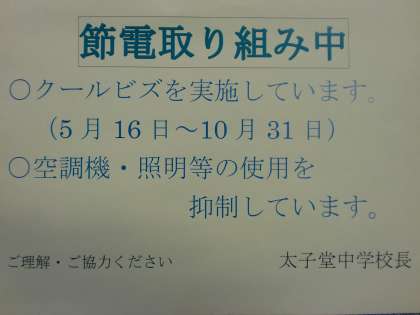 節電取り組み中
○クールビズを実施しています。
（5月16日～10月31日）
○空調機・照明等の使用を
抑制しています。
ご理解・ご協力ください 太子堂中学校長